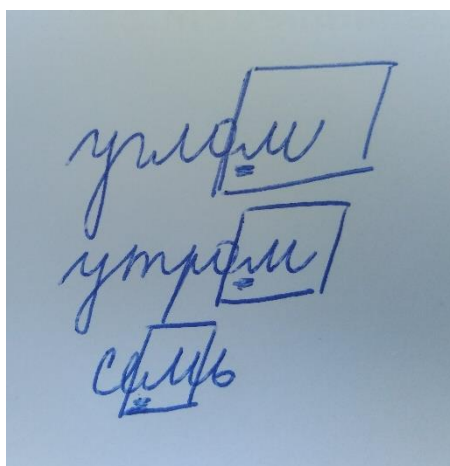 углом
утром
семь